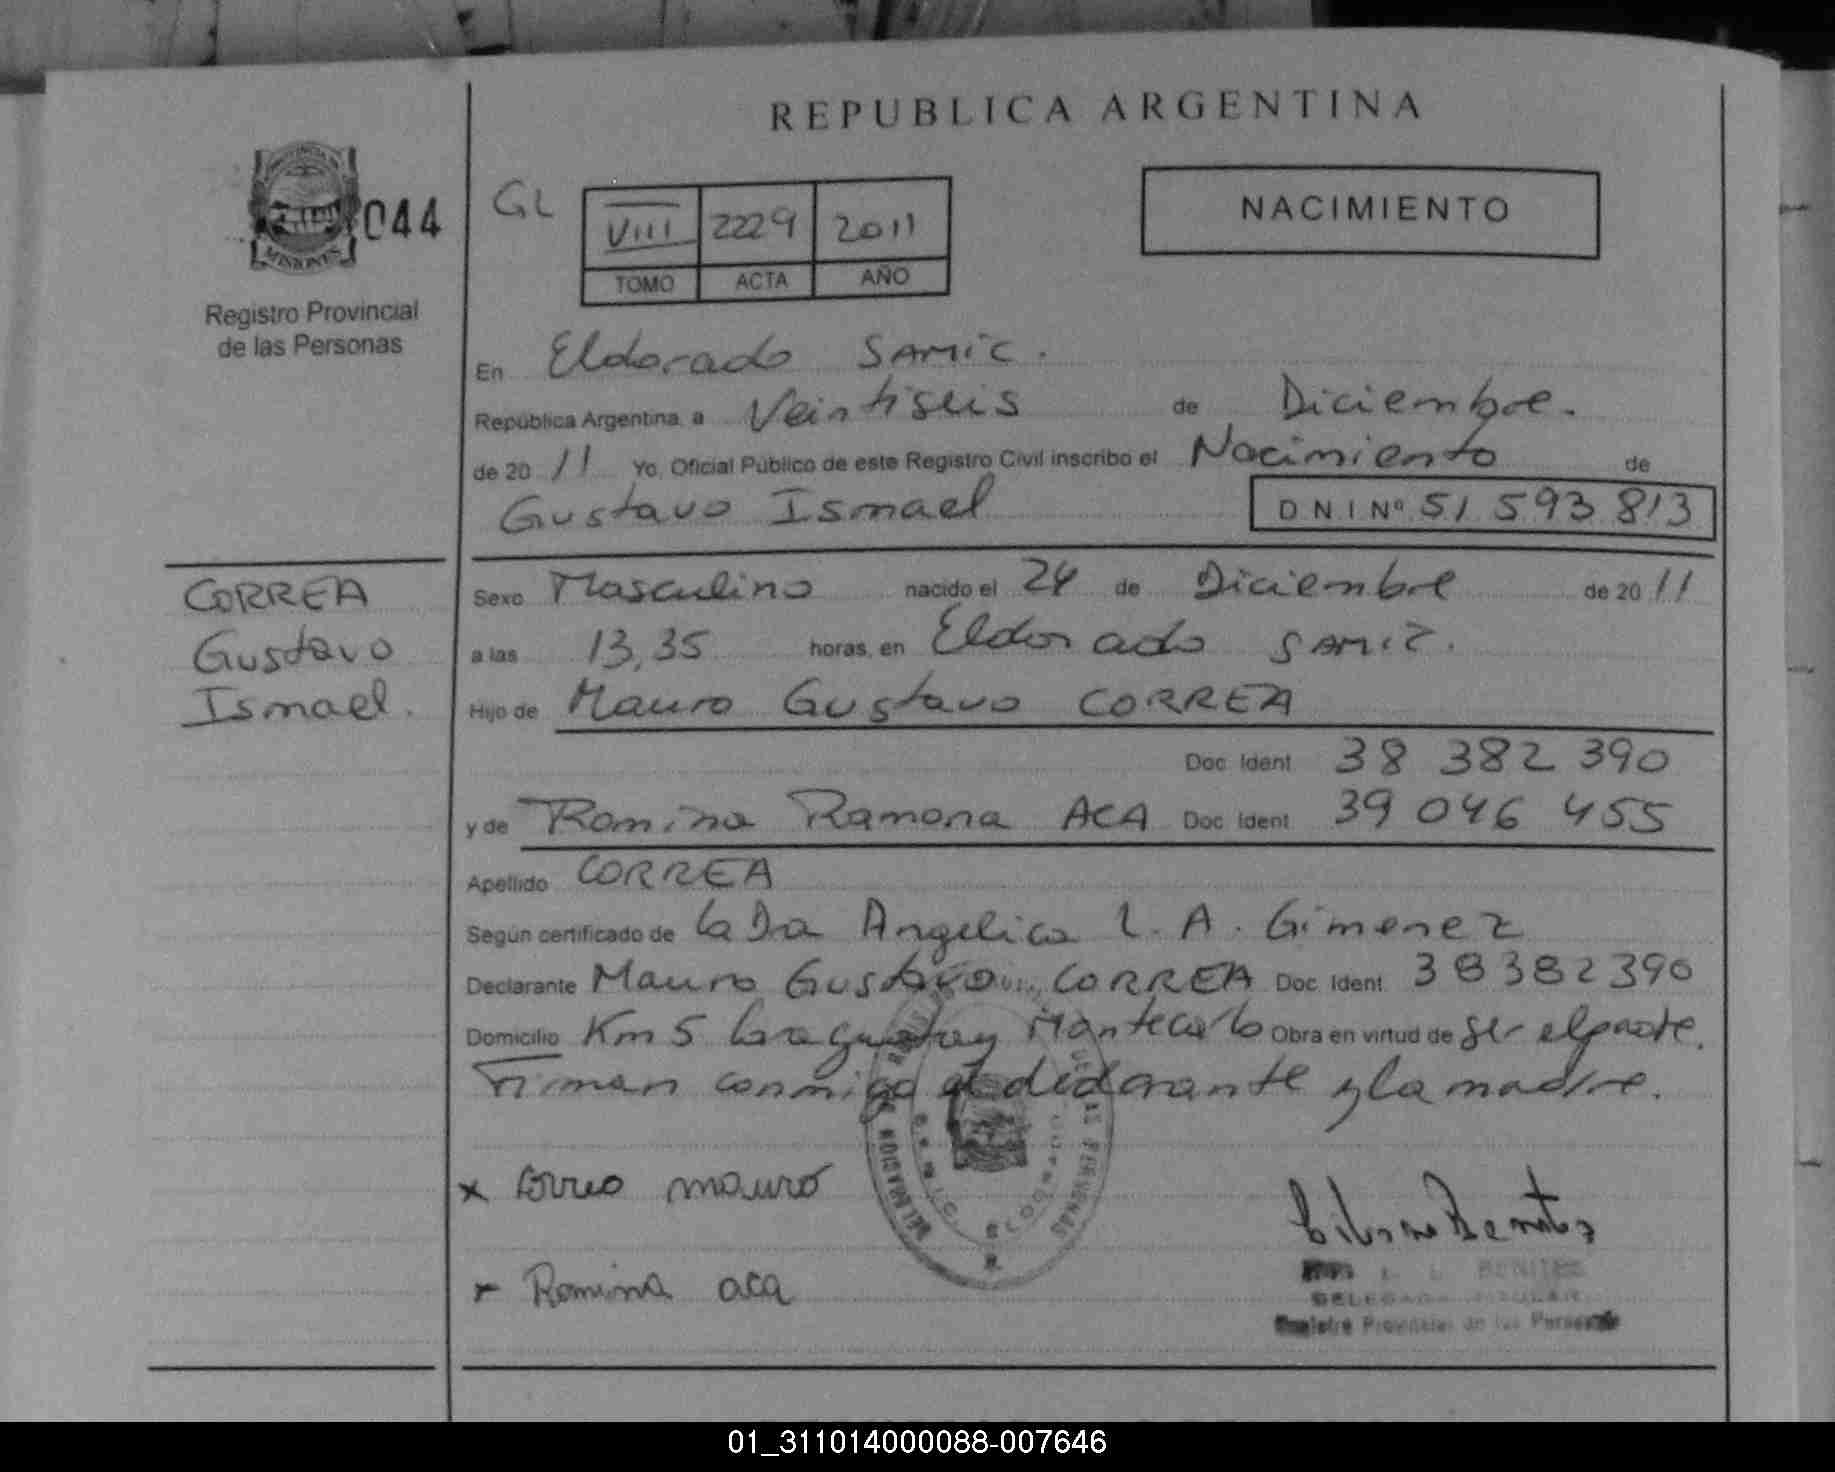 REPUBLICA ARGENTINA
PROVINCIA DE
MISIONES
044
GL
VIII 2229 2011
TOMO ACTA AÑO
NACIMIENTO
Registro Provincial
de las Personas
En Eldorado SAMIC.
República Argentina, a Veintiseis de Diciembre.
de 20 11 Yo, Oficial Público de este Registro Civil inscribo el Nacimiento de
Gustavo Ismael D N I Nº 51 593 813
CORREA
Gustavo
Ismael.
Sexo Masculino nacido el 24 de Diciembre de 20 11
a las 13,35 horas, en Eldorado SAMIC.
Hijo de Mauro Gustavo CORREA
Doc Ident 38 382 390
y de Romina Ramona ACA Doc Ident 39 046 455
Apellido CORREA
Según certificado de la Dra Angelica L. A. Gimenez
Declarante Mauro Gustavo CORREA Doc Ident. 38382390
Domicilio Km 5 Caraguatay Montecarlo Obra en virtud de ser el padre.
Firman conmigo el declarante y la madre.
x Correa mauro
x Romina aca
BENITEZ
Registro Provincial de las Personas
01_311014000088-007646